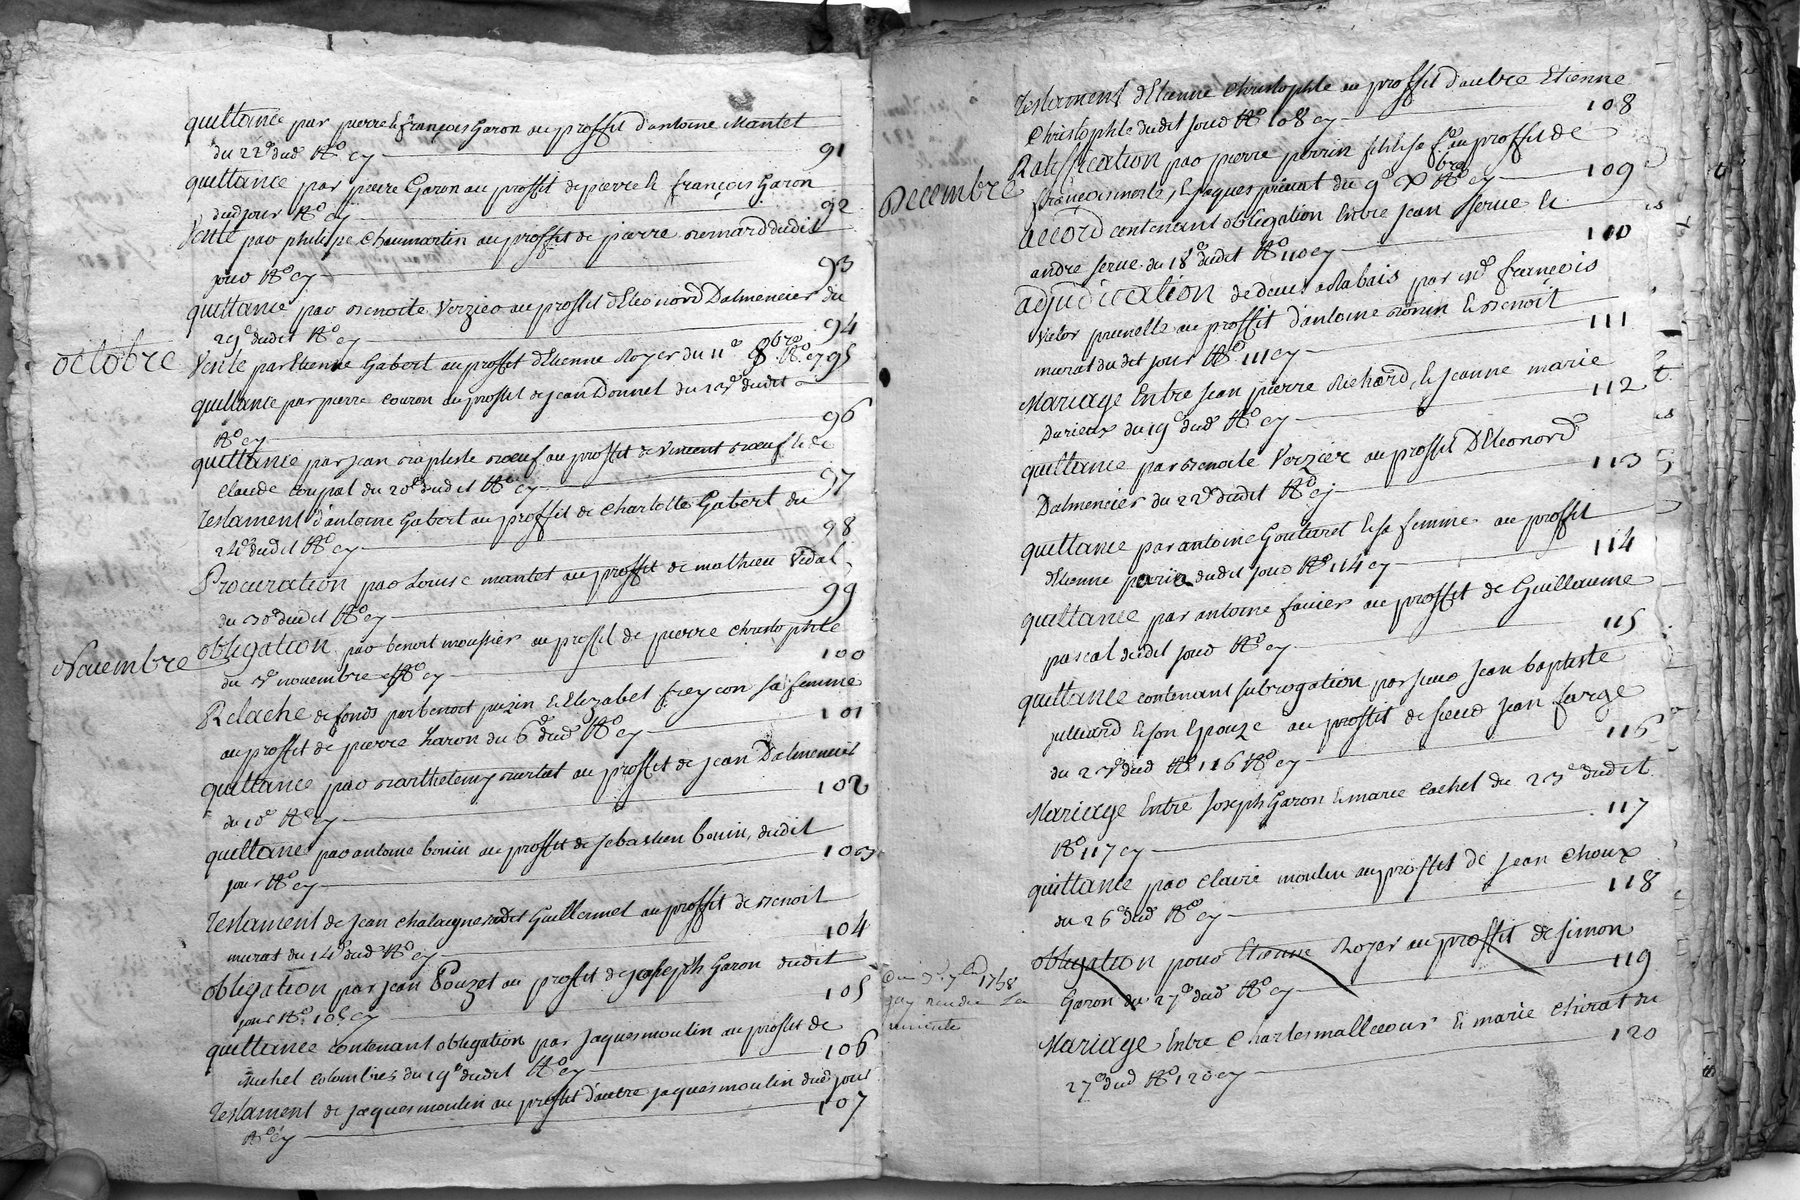 quittance par pierre & françois Garon au proffit d'antoine Mantet
du 22e dud No cy 91
quittance par pierre Garon au proffit de pierre & françois Garon
dud jour No cy 92
Vente par philipe Chaumartin au proffit de pierre Bernard dudit
jour No cy 93
quittance par Benoite Verzier au proffit d'Eleonord Dalmencier du
29e dudit No cy 94
octobre
Vente par Etienne Gabert au proffit d'Etienne Royer du 11e 8bre No cy 95
quittance par pierre couron au proffit de jean Donnet du 13e dudit
No cy 96
quittance par jean Baptiste Boeuf au proffit de Vincent Boeuf & de
claude coupat du 20e dudit No cy 97
Testament d'antoine Gabert au proffit de Charlotte Gabert du
24e dudit No cy 98
Procuration par Louise mantet au proffit de mathieu Vidal
du 30e dudit No cy 99
Novembre
obligation par benoit moussier au proffit de pierre christophle
du 3e novembre No cy 100
Relache de fonds par benoit puzin & Elizabet freycon sa femme
au proffit de pierre Garon du 6e dud No cy 101
quittance par Barthelemy Burlat au proffit de jean Dalmencier
du 10e No cy 102
quittance par antoine bonin au proffit de sebastien bonin, dudit
jour No cy 103
Testament de jean chataigne dit Guillermet au proffit de Benoit
murat du 14e dud No cy 104
obligation par jean Pouzet au proffit de joseph Garon dudit
jour No 105 cy 105
quittance contenant obligation par jaques moulin au proffit de
Michel colombier du 19e dudit No cy 106
Testament de jaques moulin au proffit d'autre jaques moulin dud jour
No cy 107
Testament d'Etienne christophle au proffit d'autre Etienne
christophle dudit jour No 108 cy 108
Decembre
Ratiffication par pierre perrin fils & sa fe au proffit de
& jaques du 9e Xbre No cy 109
accord contenant obligation Entre jean serve &
andre serve du 18e dudit No 110 cy 110
adjudication de deux par Me françois
Victor prunelle au proffit d'antoine Bonin & Benoit
murat du dit jour No 111 cy 111
Mariage Entre jean pierre Richard, & jeanne marie
Durieux du 19e dud No cy 112
quittance par Benoite Verzier au proffit D'Eleonord
Dalmencier du 22e dudit No cy 113
quittance par antoine Goutaret & sa femme au proffit
d'Etienne dudit jour No 114 cy 114
quittance par antoine favier au proffit de Guillaume
pascal dudit jour No cy 115
quittance contenant subrogation par sieur jean baptiste
julliard & son Epouze au proffit de sieur jean farge
du 23e dud No 116 No cy 116
Mariage Entre Joseph Garon & marie cachet du 23e dudit
No 117 cy 117
quittance par claire moulin au proffit de jean choux
du 26e dud No cy 118
obligation pour Etienne Royer au proffit de simon
Garon du 27e dud No cy 119
1768
jay rendu la
minute
Mariage Entre Charles mallecour & marie chirat du
27e dud No 120 cy 120